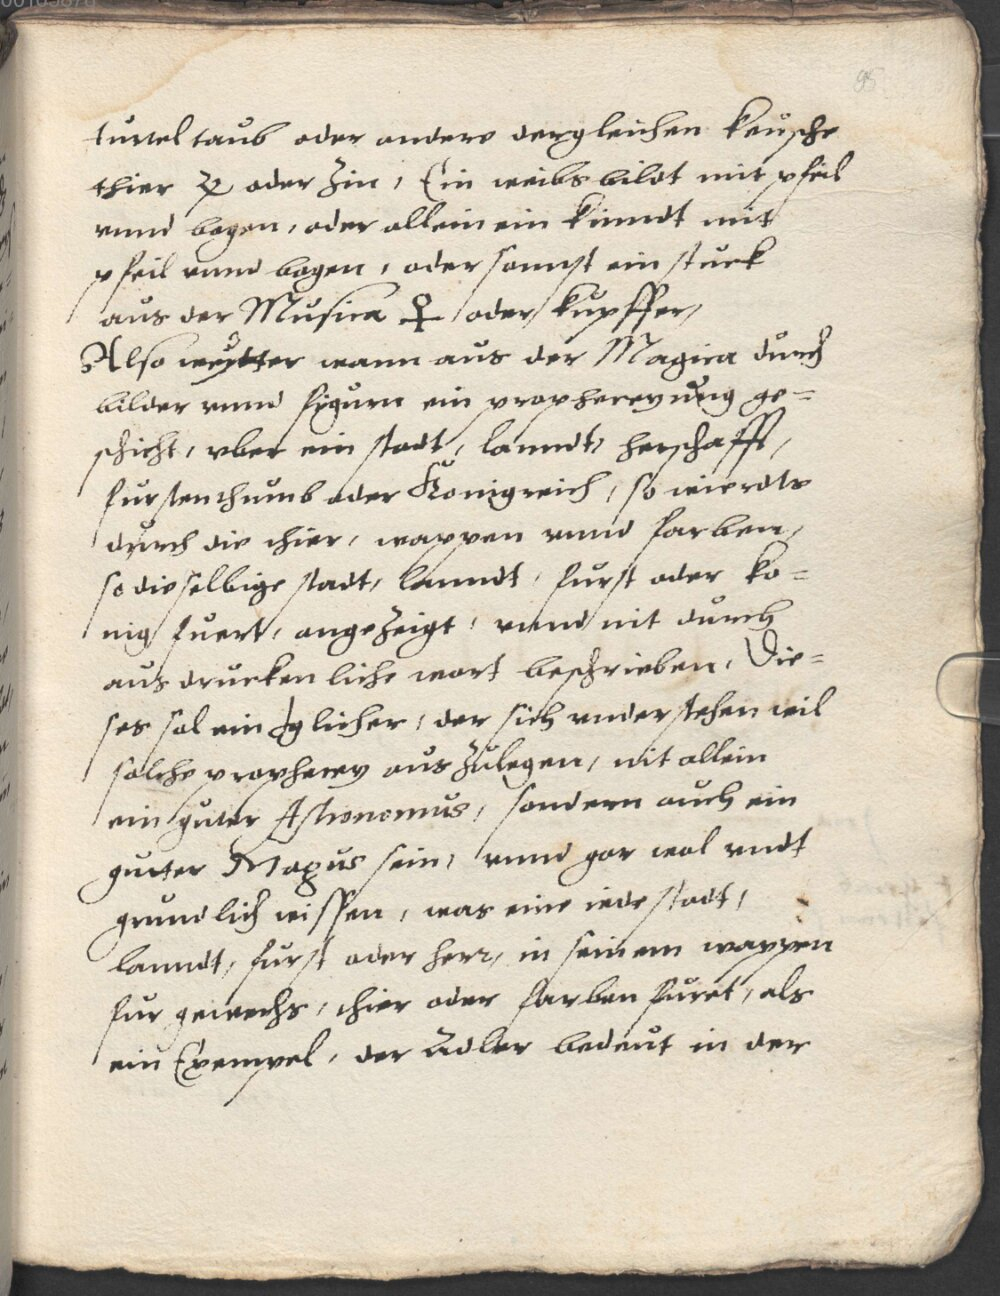 95
turteltaub oder anders dergleichen keusche
thier ♃ oder Zin, Ein weibsbildt mit pfeil
vnnd bogen, oder allein ein kinndt mit
pfeil vnnd bogen, oder sonnst ein stuck
aus der Musica ♀ oder kupffer,
Also weytter wann aus der Magica durch
bilder vnnd figurn ein propheceyung ge=
schicht, vber ein stadt, lanndt, herschafft,
furstenthumb oder Konigreich, so wierdts
durch die thier, wappen vnnd farben,
so dieselbige stadt, lanndt, furst oder ko=
nig fuert, angezeigt, vnnd nit durch
ausdruckenliche wort beschrieben, Die=
ses sol ein Iglicher, der sich vnderstehen wil
solche prophecey auszulegen, nit allein
ein guter Astronomus, sondern auch ein
gutter Magus sein, vnnd gar wol vndt
grundlich wissen, was eine iede stadt,
lanndt, furst oder herr, in seinem wappen
fur gewechs, thier oder farben furet, als
ein Exempel, der Adler bedeut in der